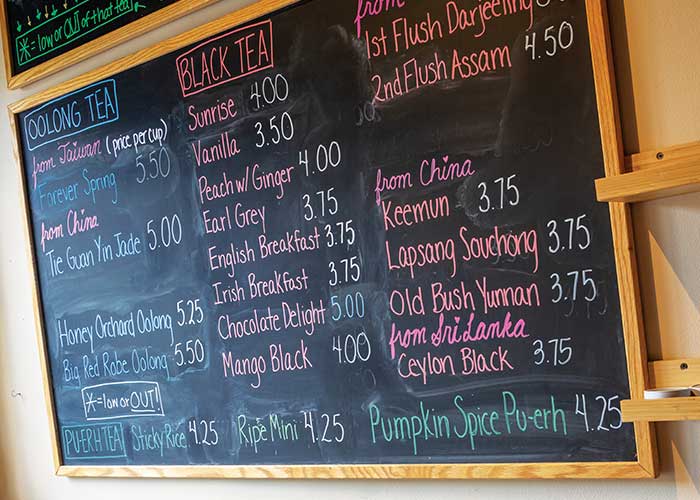 *=low or OUT of that tea
OOLONG TEA
from Taiwan (price per cup)
Forever Spring 5.50
from China
Tie Guan Yin Jade 5.00
Honey Orchard Oolong 5.25
Big Red Robe Oolong 5.50
*=low or OUT!
BLACK TEA
Sunrise 4.00
Vanilla 3.50
Peach w/ Ginger 4.00
Earl Grey 3.75
English Breakfast 3.75
Irish Breakfast 3.75
Chocolate Delight 5.00
Mango Black 4.00
from
1st Flush Darjeeling 5.00
2nd Flush Assam 4.50
from China
Keemun 3.75
Lapsang Souchong 3.75
Old Bush Yunnan 3.75
from Sri Lanka
Ceylon Black 3.75
PUERH TEA Sticky Rice 4.25 Ripe Mini 4.25 Pumpkin Spice Pu-erh 4.25